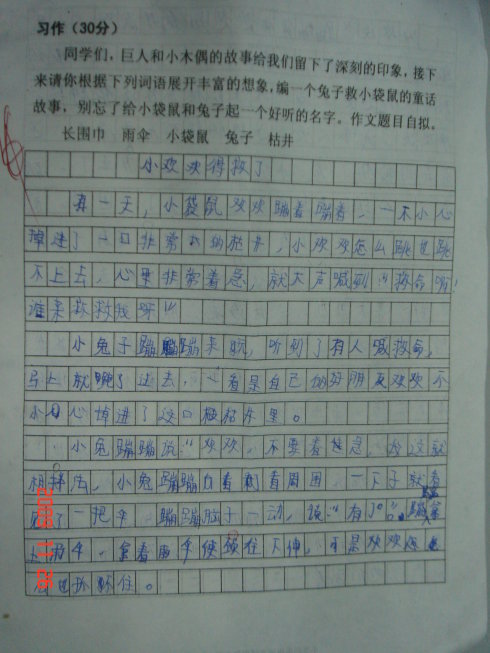 习作（30分）
同学们，巨人和小木偶的故事给我们留下了深刻的印象，接下
来请你根据下列词语展开丰富的想象，编一个兔子救小袋鼠的童话
故事，别忘了给小袋鼠和兔子起一个好听的名字。作文题目自拟。
长围巾 雨伞 小袋鼠 兔子 枯井
小欢欢得救了
有一天，小袋鼠欢欢蹦着蹦着，一不小心
掉进了一口非常大的枯井，小欢欢怎么跳也跳
不上去，心里非常着急，就大声喊到：“救命呀！
谁来救救我呀！”
小兔子蹦蹦来玩，听到了有人喊救命，
马上就跑了过去，一看是自己的好朋友欢欢不
小心掉进了这口枯井里。
小兔蹦蹦说：“欢欢，不要着急，我这就
想办法，小兔蹦蹦看看周围，一下子就看
见了一把伞，蹦蹦脑子一动，说：“有了！”，蹦蹦拿
上雨伞，拿着伞使劲往下伸，可是欢欢